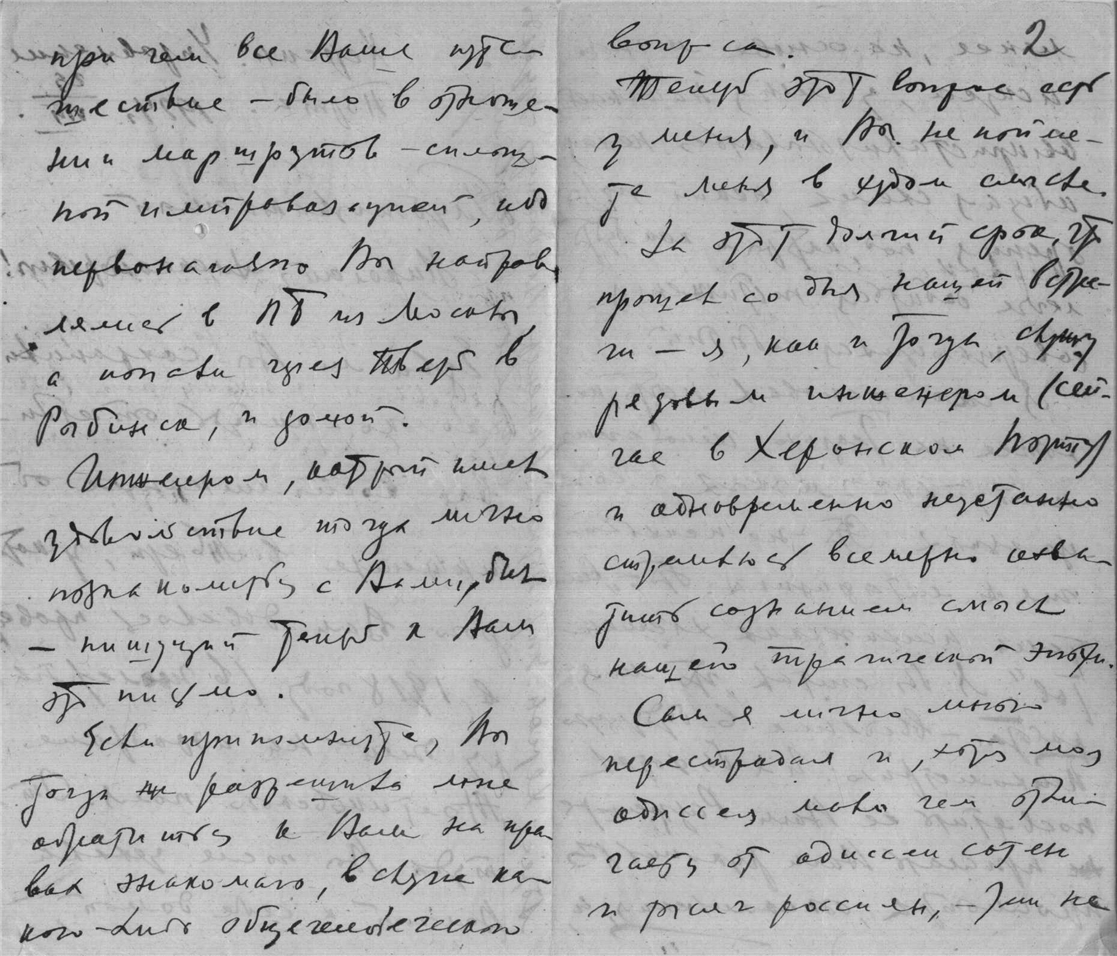 при чем все Ваше путе-
шествие – было в отноше-
нии маршрутов – сплош-
ной импровизацией, ибо
первоначально Вы направ-
лялись в ПБ из Москвы,
а попали через Тверь в
Рыбинск, и домой.
Инженером, который имел
удовольствие тогда лично
познакомиться с Вами, был
– пишущий теперь к Вам
это письмо.
Если припомните, Вы
тогда разрешили мне
обратиться к Вам на пра-
вах знакомаго, в случае ка-
кого-либо общечеловеческого
2
вопроса.
Теперь этот вопрос есть
у меня, и Вы не поймe-
те меня в худом смысле.
За этот долгий срок, что
прошел со дня нашей встре-
чи – я, как и тогда, служу
рядовым инженером (сей-
час в Херсонском Порту)
и одновременно неустанно
стремлюсь всемерно охва-
тить сознанием смысл
нашей трагической эпохи.
Сам я лично много
перестрадал и, хотя моя
одиссея мало чем отли-
чается от одиссеи сотен
и тысяч россиян, – они не